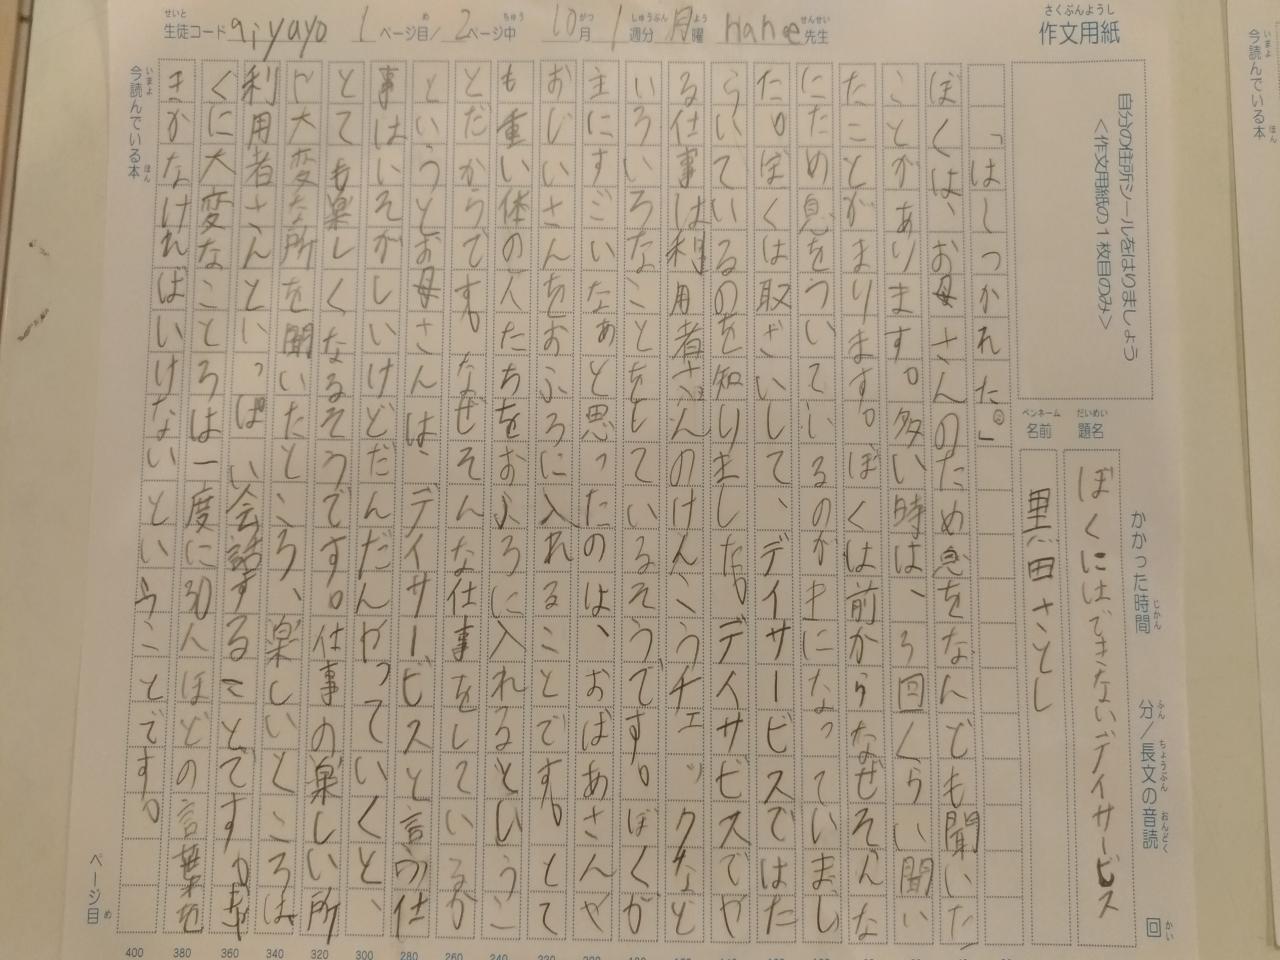 生徒コード qiyayo 1 ページ目/ 2 ページ中 10 月 1 週分 月 曜 nane 先生
作文用紙
自分の住所シールをはりましょう
<作文用紙の1枚目のみ>
かかった時間 分/長文の音読 回
題名 ぼくにはできないデイサービス
名前 黒田さとし
「はーつかれた。」
ぼくは、お母さんのため息をなんども聞いた
ことがあります。多い時は、5回くらい聞い
たことがあります。ぼくは前からなぜそんな
にため息をついているのか気になっていまし
た。ぼくは取ざいして、デイサービスではた
らいているのを知りました。デイサビスでや
る仕事は利用者さんのけんこうチェックなど
いろいろなことをしているそうです。ぼくが
主にすごいなぁと思ったのは、おばあさんや
おじいさんをおふろに入れることです。とて
も重い体の人たちをおふろに入れるというこ
とだからです。なぜそんな仕事をしているか
というとお母さんは、デイサービスと言う仕
事はいそがしいけどだんだんやっていくと、
とても楽しくなるそうです。仕事の楽しい所
と大変な所を聞いたところ、楽しいところは
利用者さんといっぱい会話することです。
くに大変なことろは一度に30人ほどの言葉を
きかなければいけないということです。
今読んでいる本
ページ目
400 380 360 340 320 300 280 260 240 220
今読んでいる本